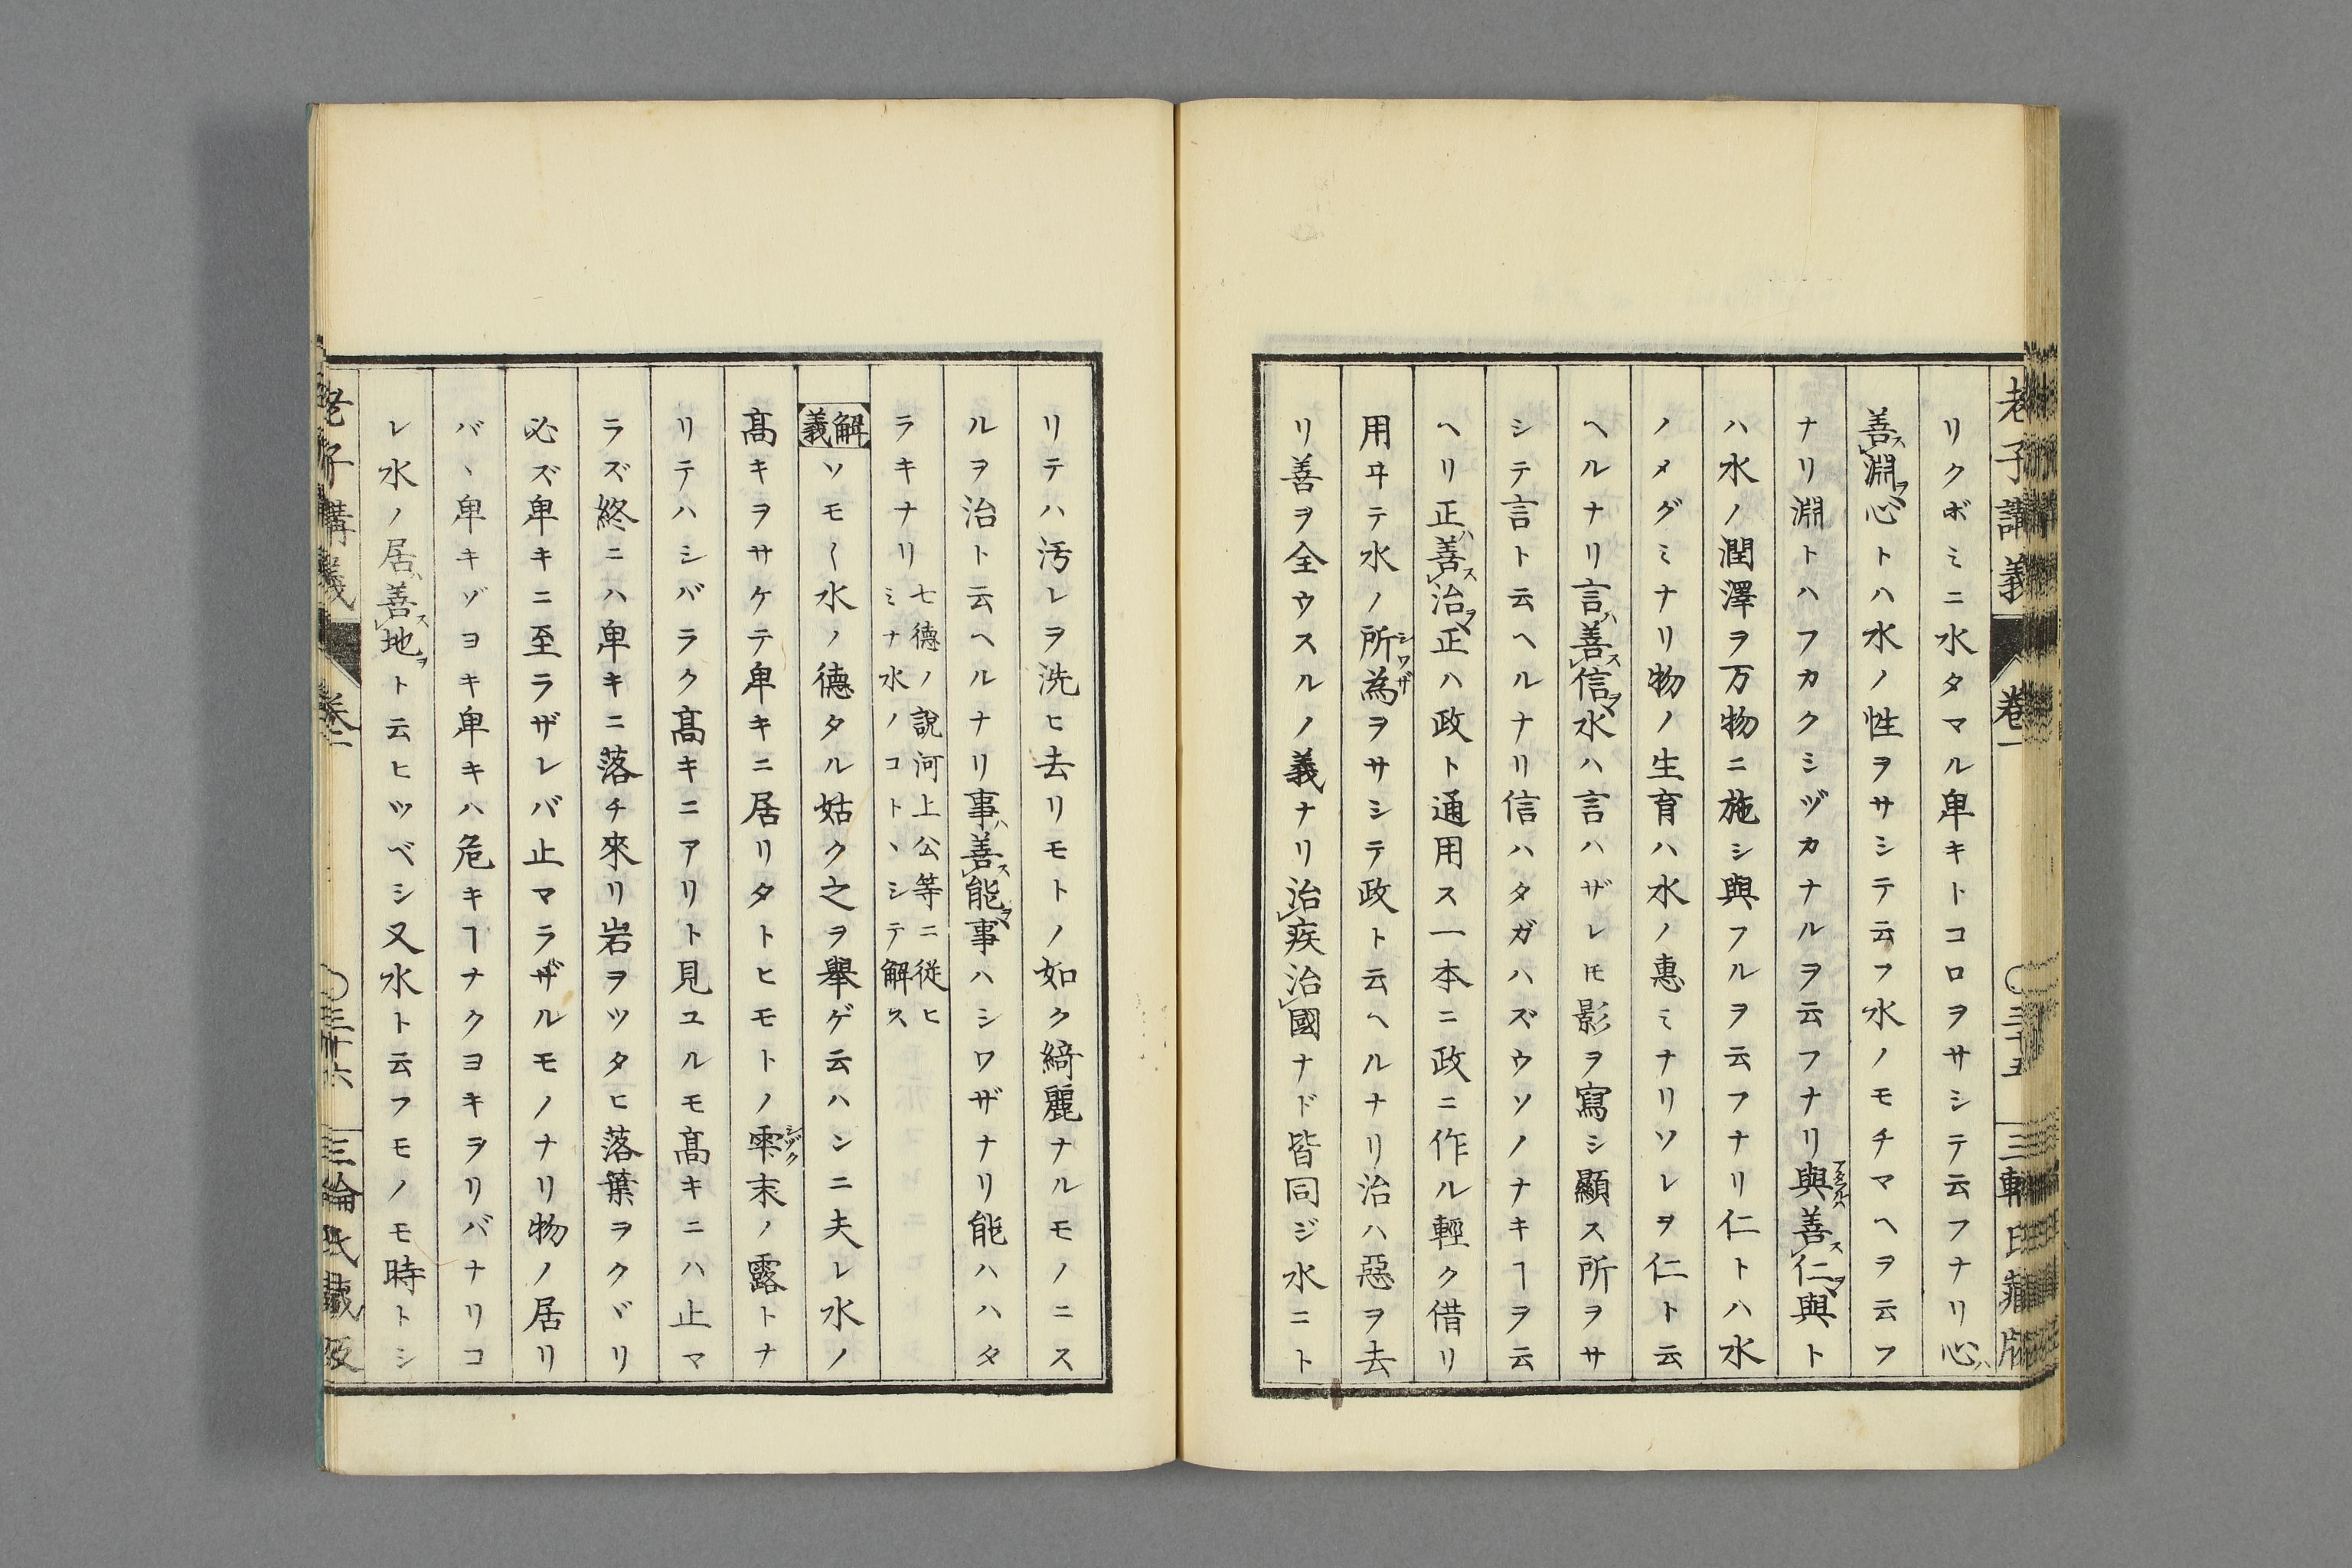 老子講義 卷一 〇三十五 三輪氏藏版
リクボミニ水タマル卑キトコロヲサシテ云フナリ心ハ
善ス淵ヲ心トハ水ノ性ヲサシテ云フ水ノモチマヘヲ云フ
ナリ淵トハフカクシヅカナルヲ云フナリ與善ス仁ヲ與ト
ハ水ノ潤澤ヲ万物ニ施シ與フルヲ云フナリ仁トハ水
ノメグミナリ物ノ生育ハ水ノ惠ミナリソレヲ仁ト云
ヘルナリ言ハ善ス信ヲ水ハ言ハザレ𪜈影ヲ寫シ顯ス所ヲサ
シテ言ト云ヘルナリ信ハタガハズウソノナキヿヲ云
ヘリ正ハ善ス治ヲ正ハ政ト通用ス一本ニ政ニ作ル輕ク借リ
用ヰテ水ノ所為シワザヲサシテ政ト云ヘルナリ治ハ惡ヲ去
リ善ヲ全ウスルノ義ナリ治疾治國ナド皆同ジ水ニト
リテハ汚レヲ洗ヒ去リモトノ如ク綺麗ナルモノニス
ルヲ治ト云ヘルナリ事ハ善ス能ヲ事ハシワザナリ能ハハタ
ラキナリ七德ノ說河上公等ニ從ヒ
ミナ水ノコトヽシテ解ス
解義ソモ〱水ノ德タル姑ク之ヲ舉ゲ云ハンニ夫レ水ノ
髙キヲサケテ卑キニ居リタトヒモトノ雫シヅク末ノ露トナ
リテハシバラク髙キニアリト見ユルモ髙キニハ止マ
ラズ終ニハ卑キニ落チ來リ岩ヲツタヒ落葉ヲクヾリ
必ズ卑キニ至ラザレバ止マラザルモノナリ物ノ居リ
バヽ卑キゾヨキ卑キハ危キヿナクヨキヲリバナリコ
レ水ノ居ハ善ス地ヲト云ヒツベシ又水ト云フモノモ時トシ
老子講義 卷一 〇三十六 三輪氏藏版